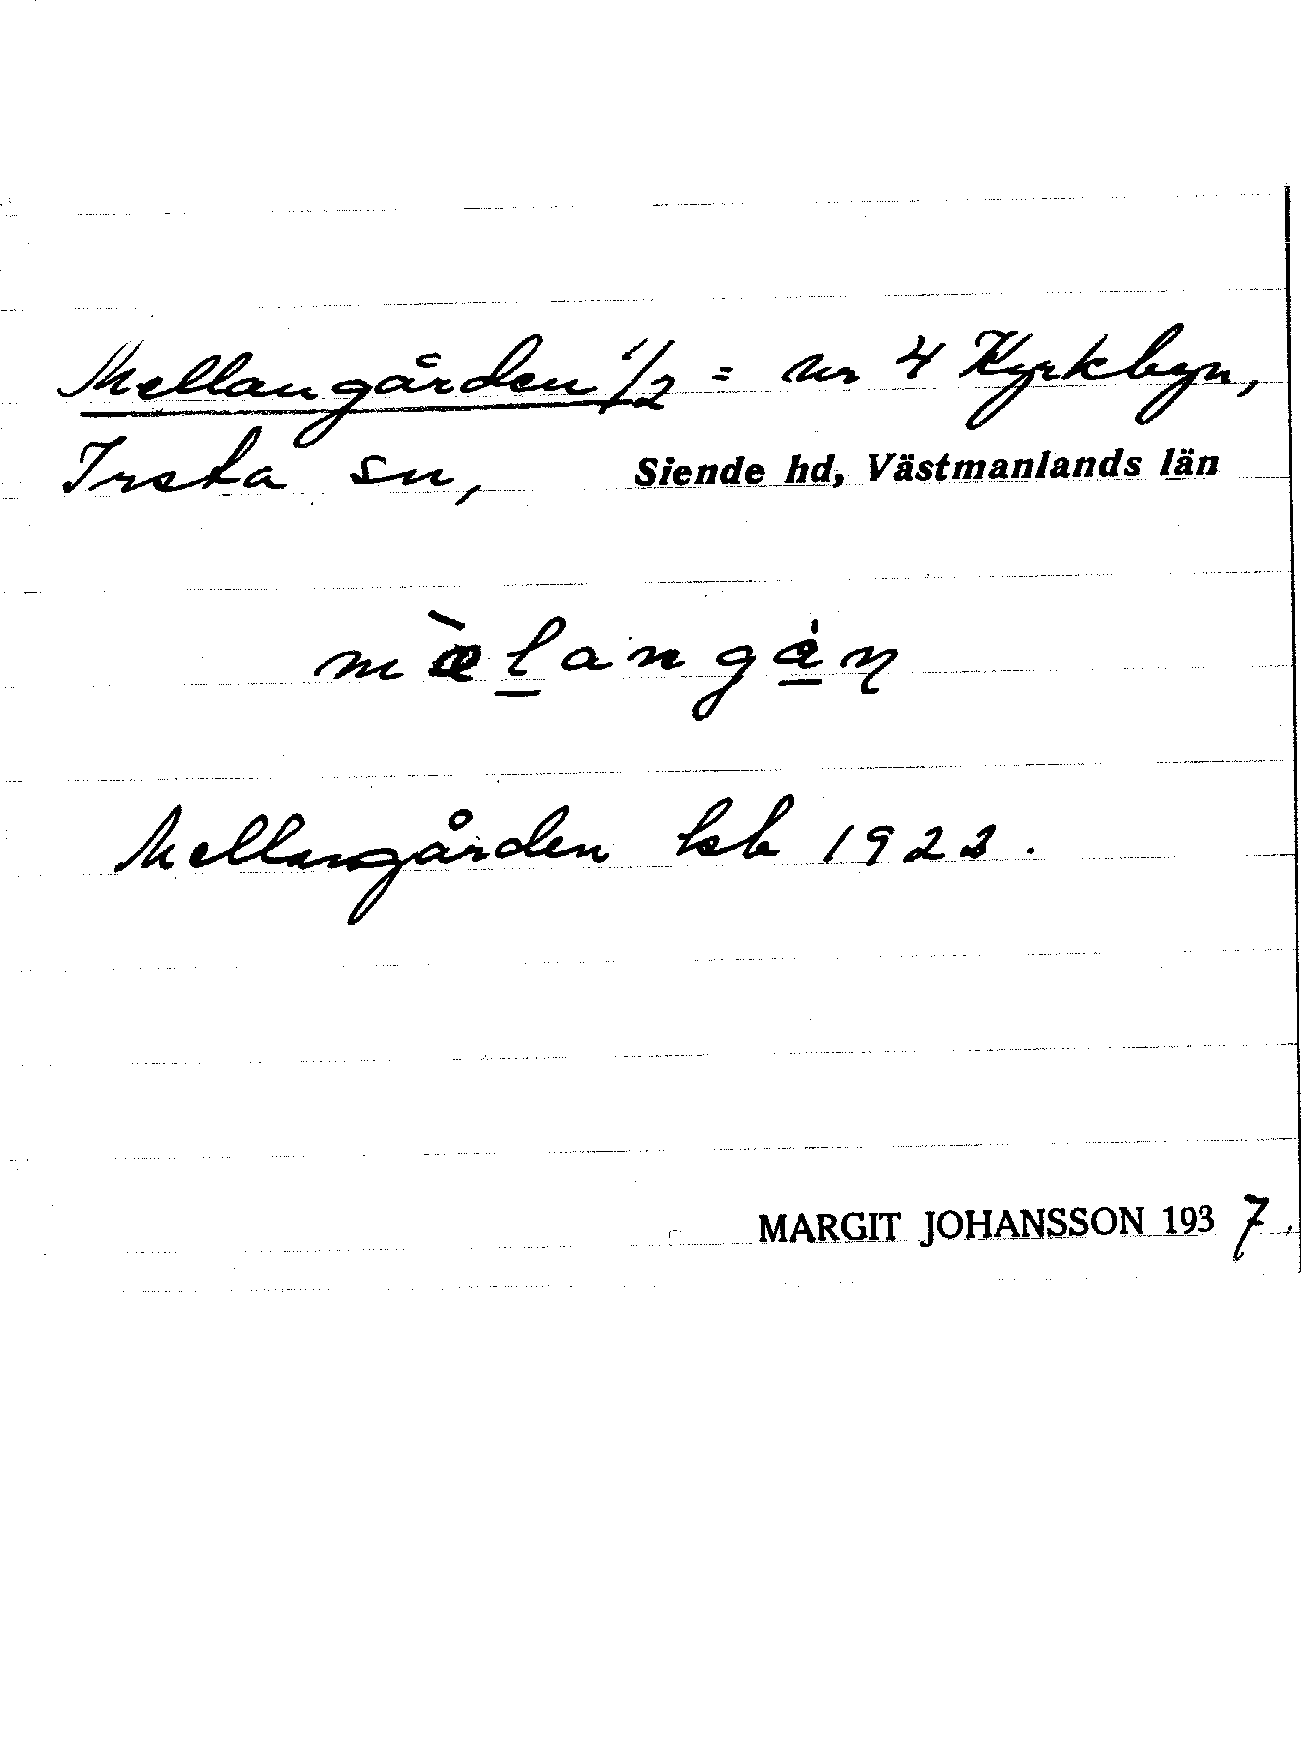 Mellangården 1/2 = nr 4 Kyrkbyn,
Irsta sn, Siende hd, Västmanlands län
mæ̀langån
Mellangården 1922.
MARGIT JOHANSSON 1937.